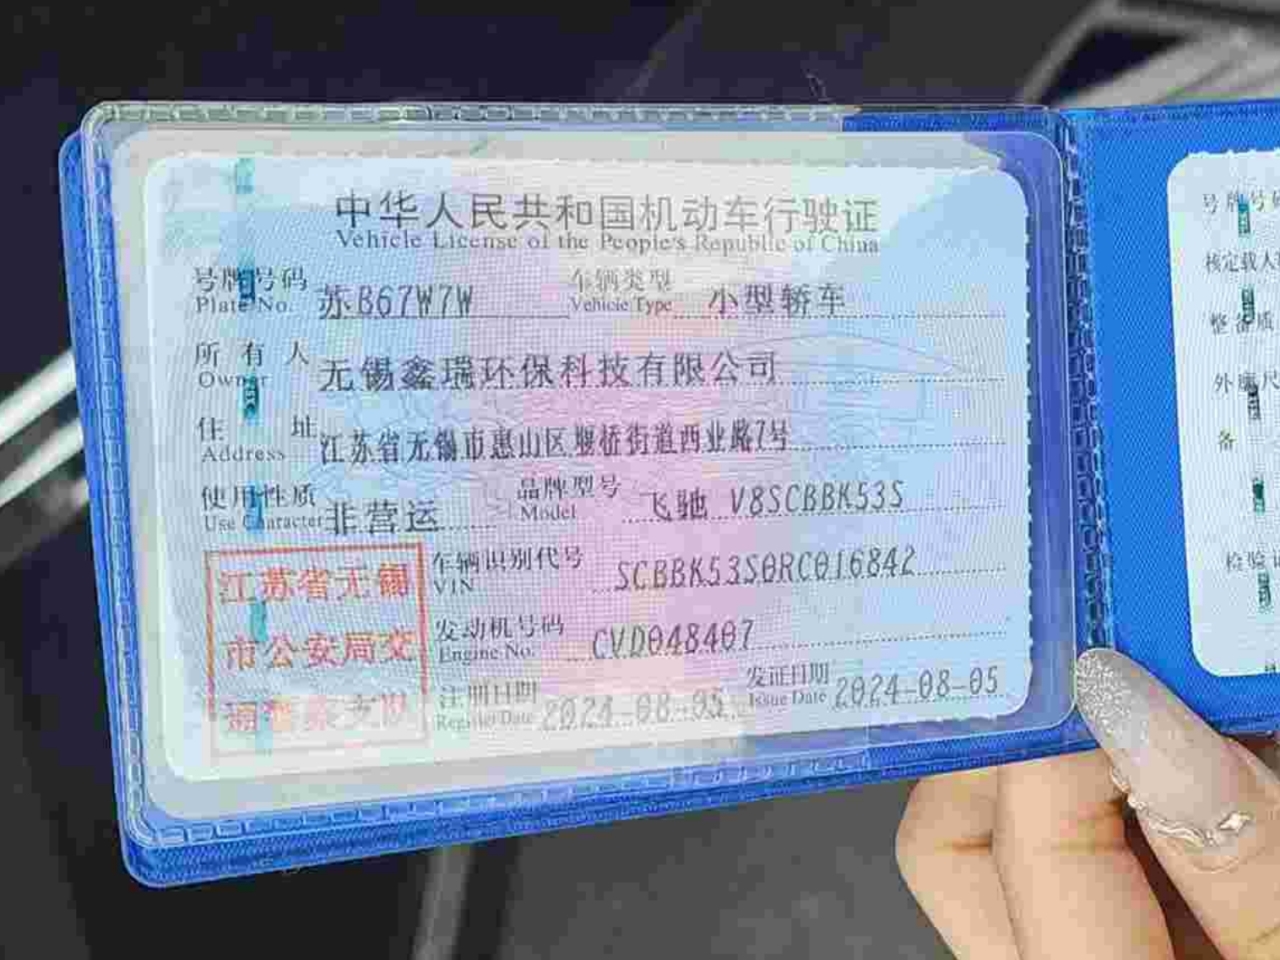 中华人民共和国机动车行驶证
Vehicle License of the People's Republic of China
号牌号码 苏B67W7W 车辆类型 小型轿车
Plate No. Vehicle Type
所有人 无锡鑫瑞环保科技有限公司
Owner
住址 江苏省无锡市惠山区堰桥街道西业路7号
Address
使用性质 非营运 品牌型号 飞驰 V8SCBBK53S
Use Character Model
车辆识别代号 SCBBK53S0RC016842
VIN
发动机号码 CVD048407
Engine No.
注册日期 2024-08-05 发证日期 2024-08-05
Register Date Issue Date
江苏省无锡
市公安局交
通警察支队
号牌号码
核定载人
整备质
外廓尺
备
检验